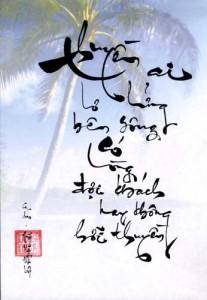 thuyền ai
lơ lửng
bên sông
Có
lòng
đợi khách
hay không
hỡi thuyền